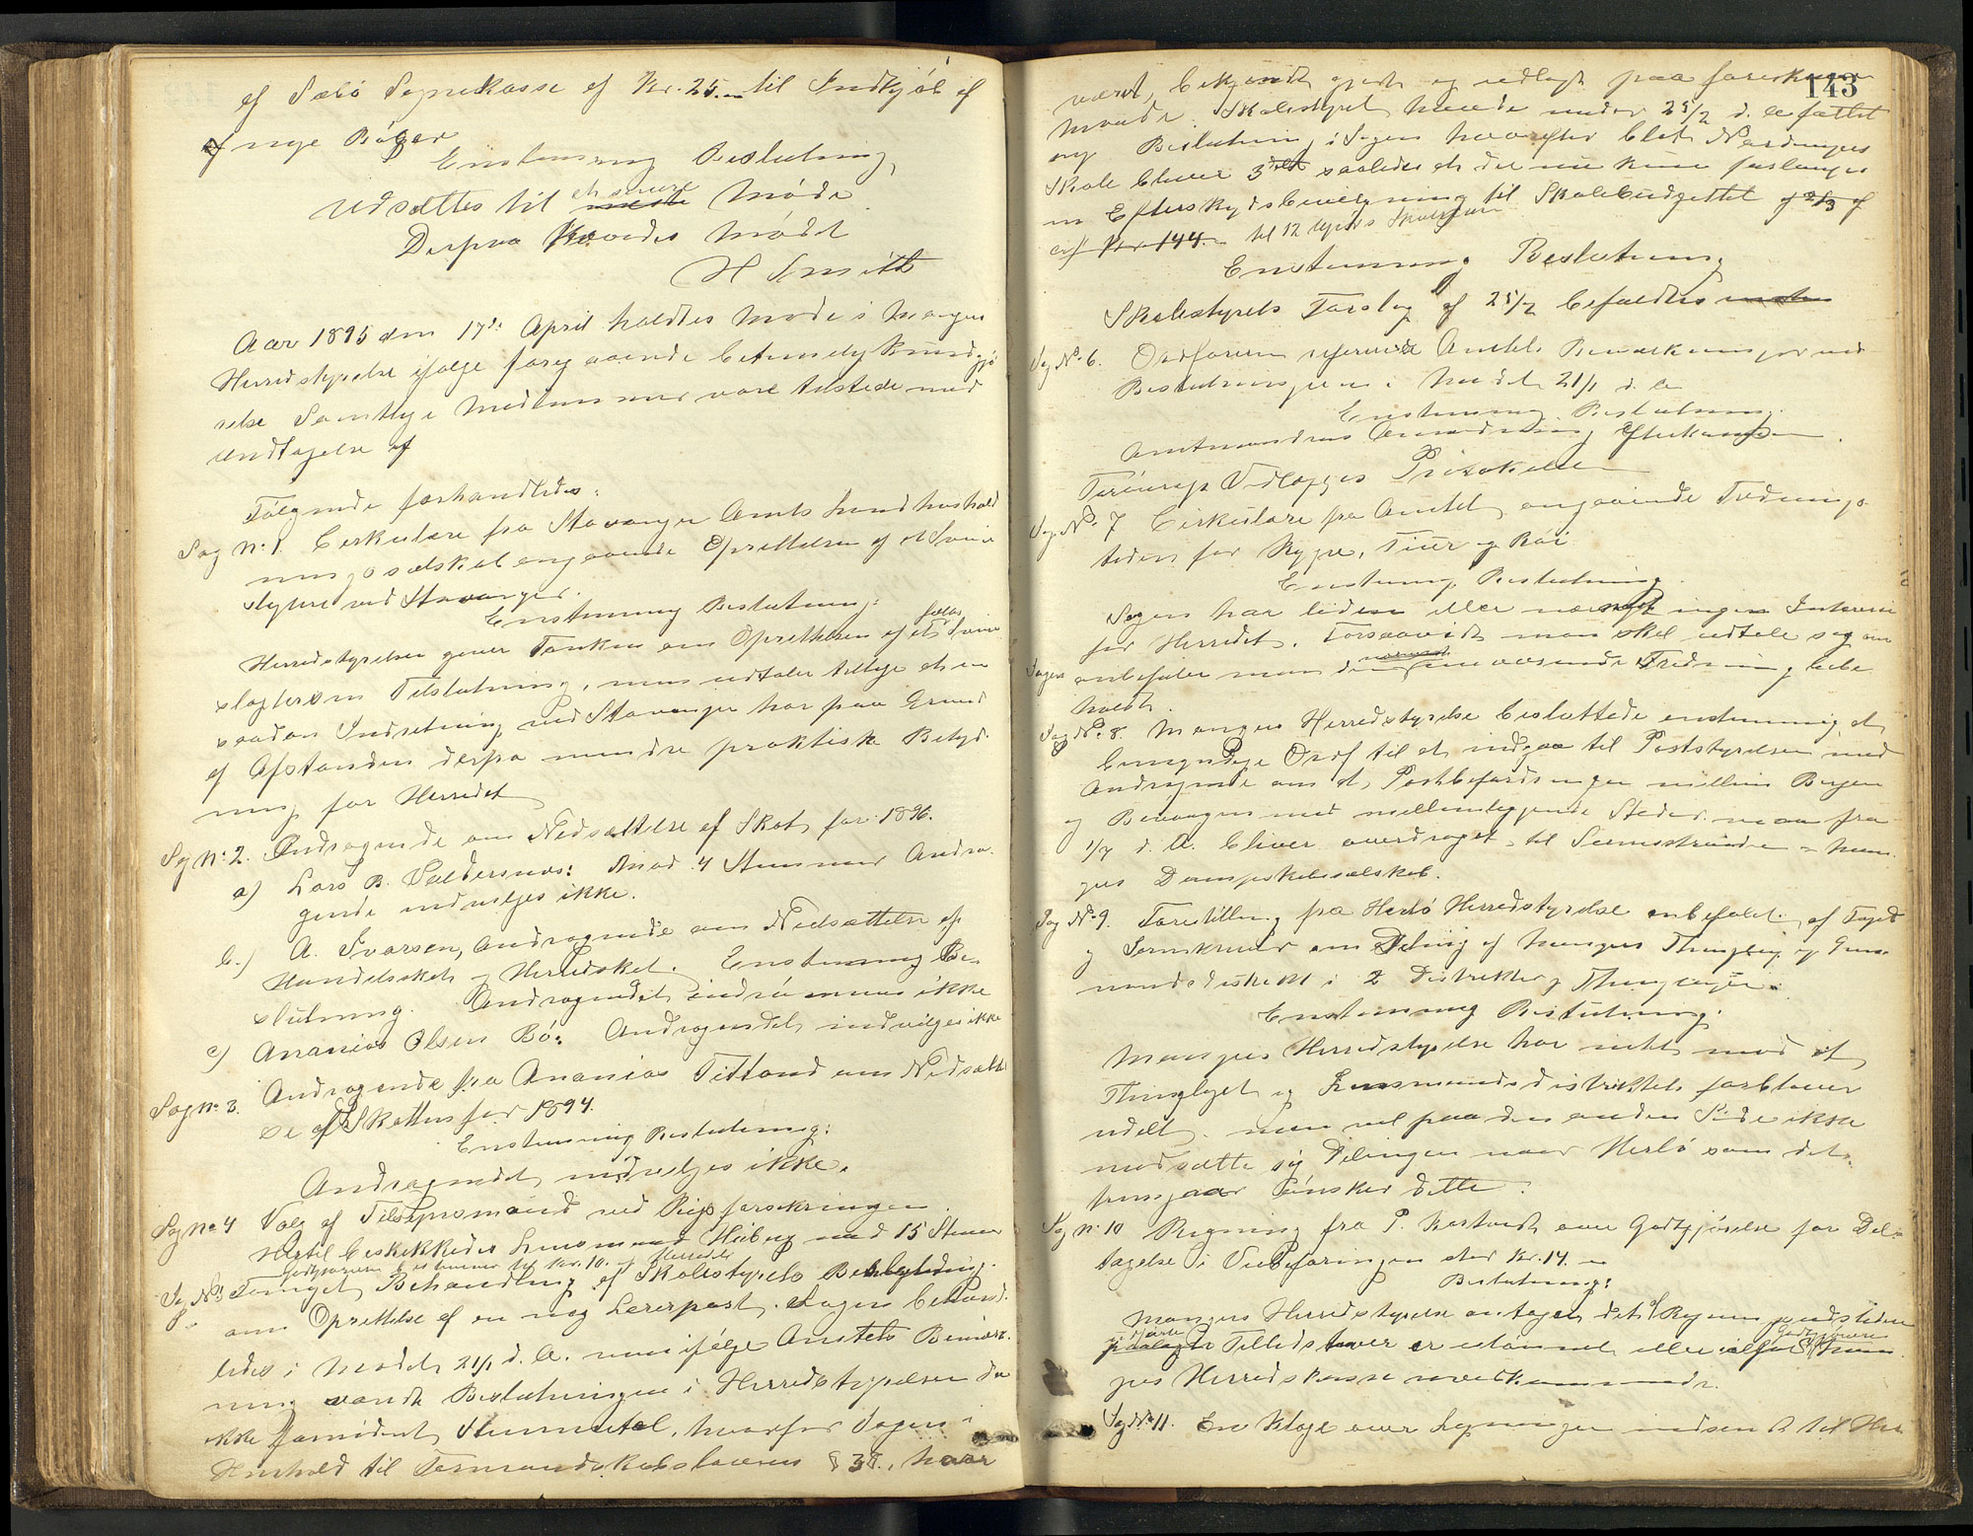 af Sæbø Sognekasse af Kr. 25.- til Indkjøb af
af nye Bøger
Enstemmig Beslutning,
Udsættes til et senere næste Møde
Derpaa hævedes Mødet
H Smith
Aar 1895 den 17de April holdtes Møde i Manger
Herredstyrelse ifølge foregaaende betimelig kundgjø
relse Samtlige Medlemmer vare tilstede med
Undtagelse af
Følgende forhandledes:
Sag No 1. Cirkulære fra Stavanger Amts Landhushold
ningsselskab angaaende Oprettelsen af et Svine
slagteri ved Stavanger.
Enstemmig Beslutning:
Herredstyrelsen giver Tanken om Oprettelsen af et fælles Svine
slagteri sin Tilslutning, men udtaler tillige at en
saadan Indretning ved Stavanger har paa Grund
af Afstanden derfra mindre praktisk Betyd
ning for Herredet
Sag No 2. Andragende om Nedsættelse af Skat for 1896.
a) Lars B. Valdersnes: Mod 4 Stemmer Andra
gende indvilges ikke.
b.) A. Ivarsen, Andragende om Nedsættelse af
Handelsskat og Herredskat. Enstemmig Be
slutning. Andragendet indrømmes ikke
c) Ananias Olsen Bø: Andragendet indvilges ikke
Sag No 3. Andragende fra Ananias Titland om Nedsættel
se af Skatten for 1894.
Enstemmig Beslutning:
Andragendet indvilges ikke.
Sag No 4 Valg af Tilsynsmand ved Rigsforsikringen.
Hertil beskikkedes Lensmand Hiberg med 15 Stemmer
Godtgjørelsen bestemmes til Kr. 10. af Herredet
Sag No 5 Fornyet Behandling af Skolestyrets Beslutning
om Oprettelse af en ny Lærerpost. Sagen behand
ledes i Mødet 21/1 d. A. men ifølge Amtets Bemærk
ning vandt Beslutningen i Herredstyrelsen da
ikke fornødent Stemmetal, hvorfor Sagen i
Henhold til Formandskabslovens § 38, har
143
været bekjendtgjort og udlagt paa foreskreven
Maade. Skolestyret havde under 25/2 d. A fattet
ny Beslutning i Sagen hvorefter blot Nordangers
Skole bliver 3delt saaledes at der nu kun forlanges
en Efterskudsbevilgning til Skolebudgettet af 2/3 af
Kr 144.- til 12 Ugers
Enstemmig Beslutning
Skolestyrets Forslag af 25/2 bifaldtes
Sag No 6. Ordføreren refererede Amtets Bemærkninger ved
Beslutningerne i Mødet 21/1 d. A
Enstemmig Beslutning.
Amtmandens Anmodning efterkommes.
Vedlægges Protokollen
Sag No 7 Cirkulære fra Amtet angaaende Frednings
tiden for Rype, Tiur og Røi
Enstemmig Beslutning.
Sagen har liden eller næsten ingen Interesse
for Herredet. Forsaavidt man skal udtale sig om
Sagen anbefaler man den nuværende Fredning bibe
holdt.
Sag No 8. Manger Herredstyrelse besluttede enstemmig at
bemyndige Ordf til at indgaa til Poststyrelsen med
Andragende om at Postbefordringen mellem Bergen
og Bøvaagen med mellemliggende Steder maa fra
1/7 d. A. bliver overdraget til Seimsstranden - Man
gers Dampskibsselskab.
Sag No 9. Forestilling fra Herlø Herredstyrelse anbefalet af Foged
og Sorenskriver om Deling af Mangers Thinglag og Lens
mandsdistrikt i 2 Distrikter og Thinglager.
Enstemmig Beslutning:
Mangers Herredstyrelse har intet mod at
Thinglaget og Lensmandsdistriktet forbliver
udelt. men vil paa den anden Side ikke
modsætte sig Delingen naar Herlø som det
fremgaar ønsker dette.
Sag No 10 Regning fra P. Kartveit over Godtgjørelse for Del
tagelse i Veibefaringen stor Kr. 14. -
Beslutning:
Mangers Herredstyrelse antager det af Regningsudstederen
udførte Tillidshverv er ulønnet eller ialfald Man
gers Herredskasse uvedkommende.
Sag No 11. En Klage over Ligningen indsendt til Her